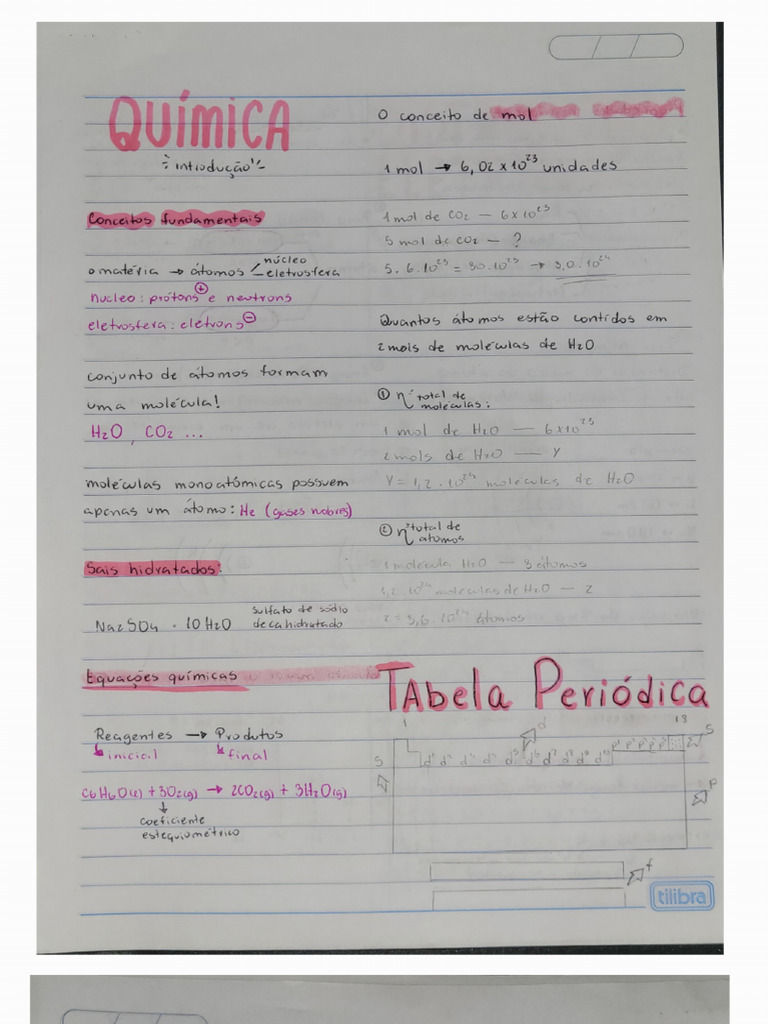 QUÍMICA
introdução
Conceitos fundamentais
o matéria → átomos
núcleo
eletrosfera
nucleo: prótons ⊕ e neutrons
eletrosfera: eletrons ⊖
conjunto de átomos formam
uma molécula!
H2O, CO2 ...
moléculas monoatômicas possuem
apenas um átomo: He (gases nobres)
Sais hidratados:
Na2SO4 · 10H2O
sulfato de sódio
decahidratado
Equações químicas
Reagentes → Produtos
inicial
final
C6H6O(l) + 3O2(g) → 2CO2(g) + 3H2O(g)
coeficiente
estequiométrico
O conceito de mol
1 mol → 6,02 x 10²³ unidades
1 mol de CO2 — 6 x 10²³
5 mol de CO2 — ?
5. 6. 10²³ = 30. 10²³ → 3,0. 10²⁴
Quantos átomos estão contidos em
2 mols de moléculas de H2O
① n° total de
moléculas:
1 mol de H2O — 6x10²³
2 mols de H2O — Y
Y = 1,2 . 10²⁴ moléculas de H2O
② n° total de
átomos
1 molécula H2O — 3 átomos
1,2. 10²⁴ moléculas de H2O — Z
Z = 3,6. 10²⁴ átomos
TAbela Periódica
1
18
d
S
S
d¹ d² d³ d⁴ d⁵ d⁶ d⁷ d⁸ d⁹ d¹⁰
p¹ p² p³ p⁴ p⁵
P
f
tilibra